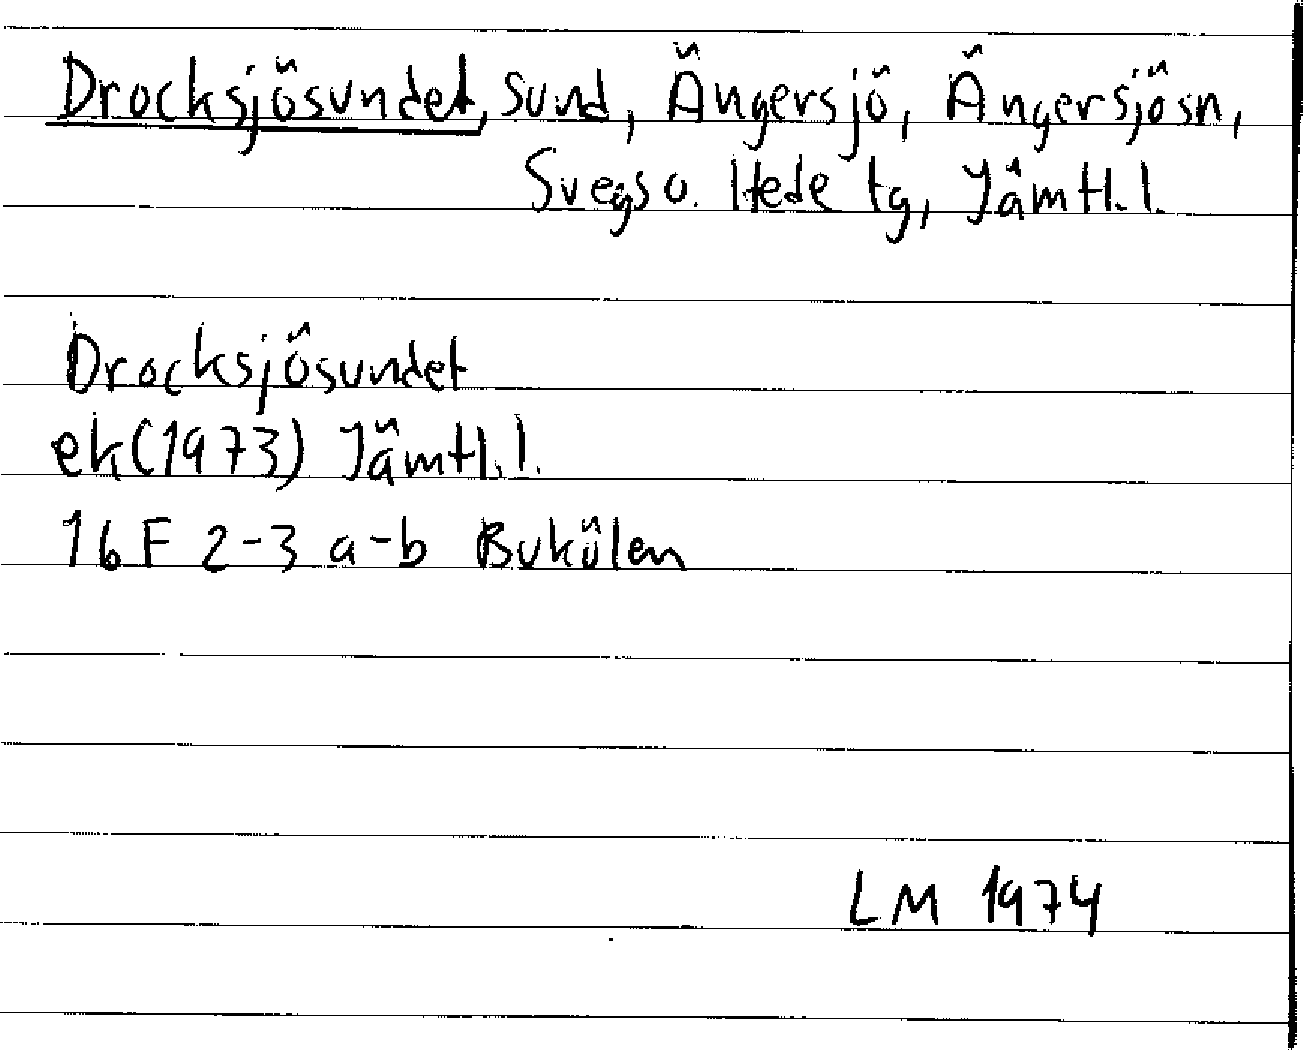 Drocksjösundet, sund, Ängersjö, Ängersjösn,
Svegs o. Hede tg, Jämtl. l.
Drocksjösundet
ek (1973) Jämtl. l.
16 F 2-3 a-b Bukölen
LM 1974